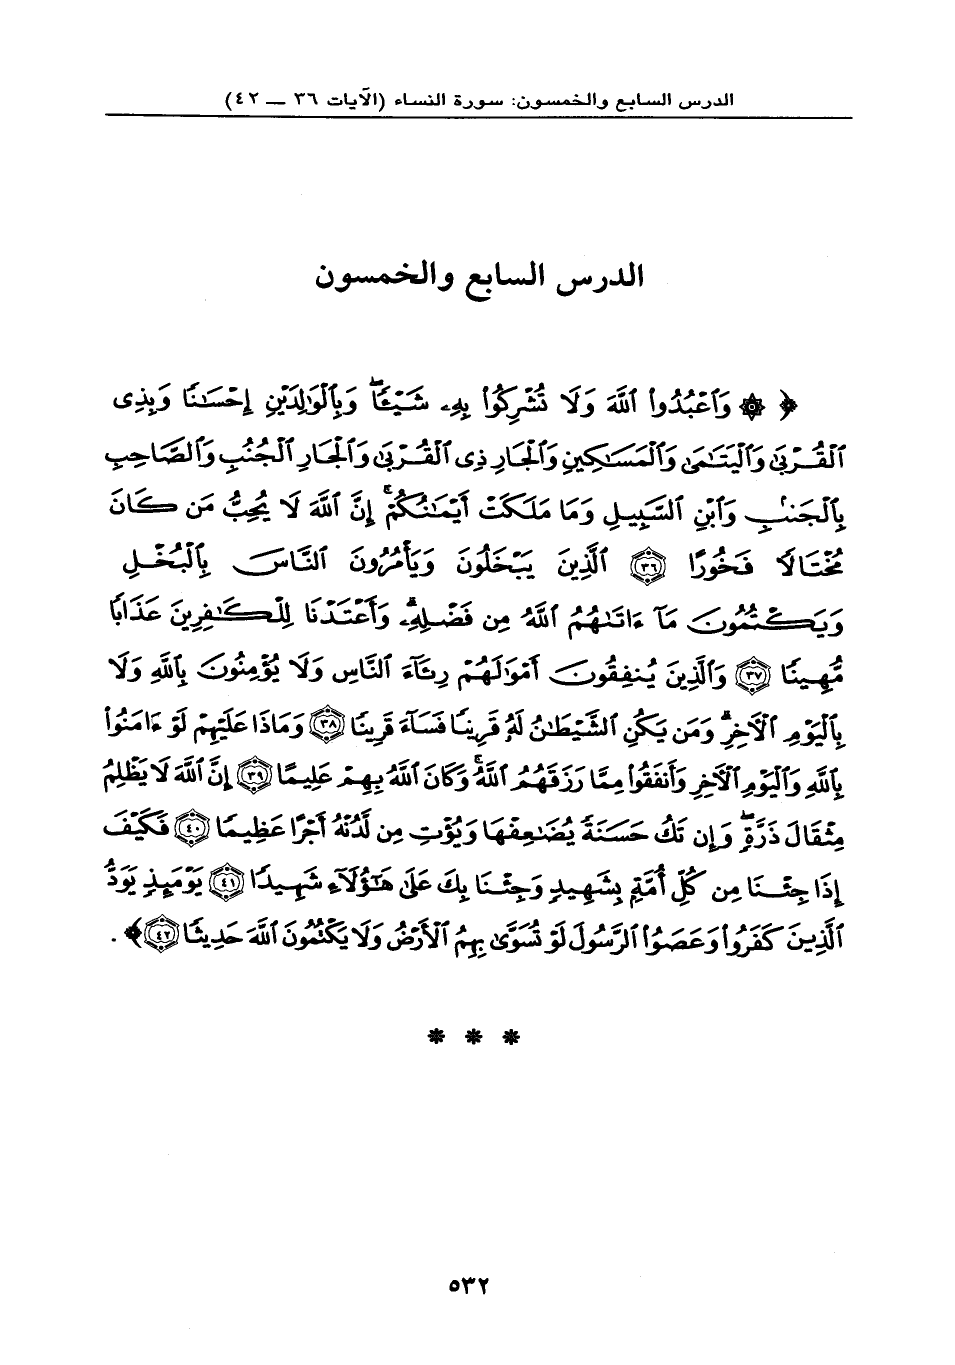 الدرس السابع والخمسون: سورة النساء (الآيات ٣٦ — ٤٢)
الدرس السابع والخمسون
﴿ ۞ وَٱعْبُدُوا۟ ٱللَّهَ وَلَا تُشْرِكُوا۟ بِهِۦ شَيْـًٔا ۖ وَبِٱلْوَٰلِدَيْنِ إِحْسَـٰنًا وَبِذِى
ٱلْقُرْبَىٰ وَٱلْيَتَـٰمَىٰ وَٱلْمَسَـٰكِينِ وَٱلْجَارِ ذِى ٱلْقُرْبَىٰ وَٱلْجَارِ ٱلْجُنُبِ وَٱلصَّاحِبِ
بِٱلْجَنۢبِ وَٱبْنِ ٱلسَّبِيلِ وَمَا مَلَكَتْ أَيْمَـٰنُكُمْ ۗ إِنَّ ٱللَّهَ لَا يُحِبُّ مَن كَانَ
مُخْتَالًا فَخُورًا ٣٦ ٱلَّذِينَ يَبْخَلُونَ وَيَأْمُرُونَ ٱلنَّاسَ بِٱلْبُخْلِ
وَيَكْتُمُونَ مَآ ءَاتَىٰهُمُ ٱللَّهُ مِن فَضْلِهِۦ ۗ وَأَعْتَدْنَا لِلْكَـٰفِرِينَ عَذَابًا
مُّهِينًا ٣٧ وَٱلَّذِينَ يُنفِقُونَ أَمْوَٰلَهُمْ رِئَآءَ ٱلنَّاسِ وَلَا يُؤْمِنُونَ بِٱللَّهِ وَلَا
بِٱلْيَوْمِ ٱلْـَٔاخِرِ ۗ وَمَن يَكُنِ ٱلشَّيْطَـٰنُ لَهُۥ قَرِينًا فَسَآءَ قَرِينًا ٣٨ وَمَاذَا عَلَيْهِمْ لَوْ ءَامَنُوا۟
بِٱللَّهِ وَٱلْيَوْمِ ٱلْـَٔاخِرِ وَأَنفَقُوا۟ مِمَّا رَزَقَهُمُ ٱللَّهُ ۚ وَكَانَ ٱللَّهُ بِهِمْ عَلِيمًا ٣٩ إِنَّ ٱللَّهَ لَا يَظْلِمُ
مِثْقَالَ ذَرَّةٍ ۖ وَإِن تَكُ حَسَنَةً يُضَـٰعِفْهَا وَيُؤْتِ مِن لَّدُنْهُ أَجْرًا عَظِيمًا ٤٠ فَكَيْفَ
إِذَا جِئْنَا مِن كُلِّ أُمَّةٍۭ بِشَهِيدٍ وَجِئْنَا بِكَ عَلَىٰ هَـٰٓؤُلَآءِ شَهِيدًا ٤١ يَوْمَئِذٍ يَوَدُّ
ٱلَّذِينَ كَفَرُوا۟ وَعَصَوُا۟ ٱلرَّسُولَ لَوْ تُسَوَّىٰ بِهِمُ ٱلْأَرْضُ وَلَا يَكْتُمُونَ ٱللَّهَ حَدِيثًا ٤٢ ﴾ .
* * *
٥٣٢